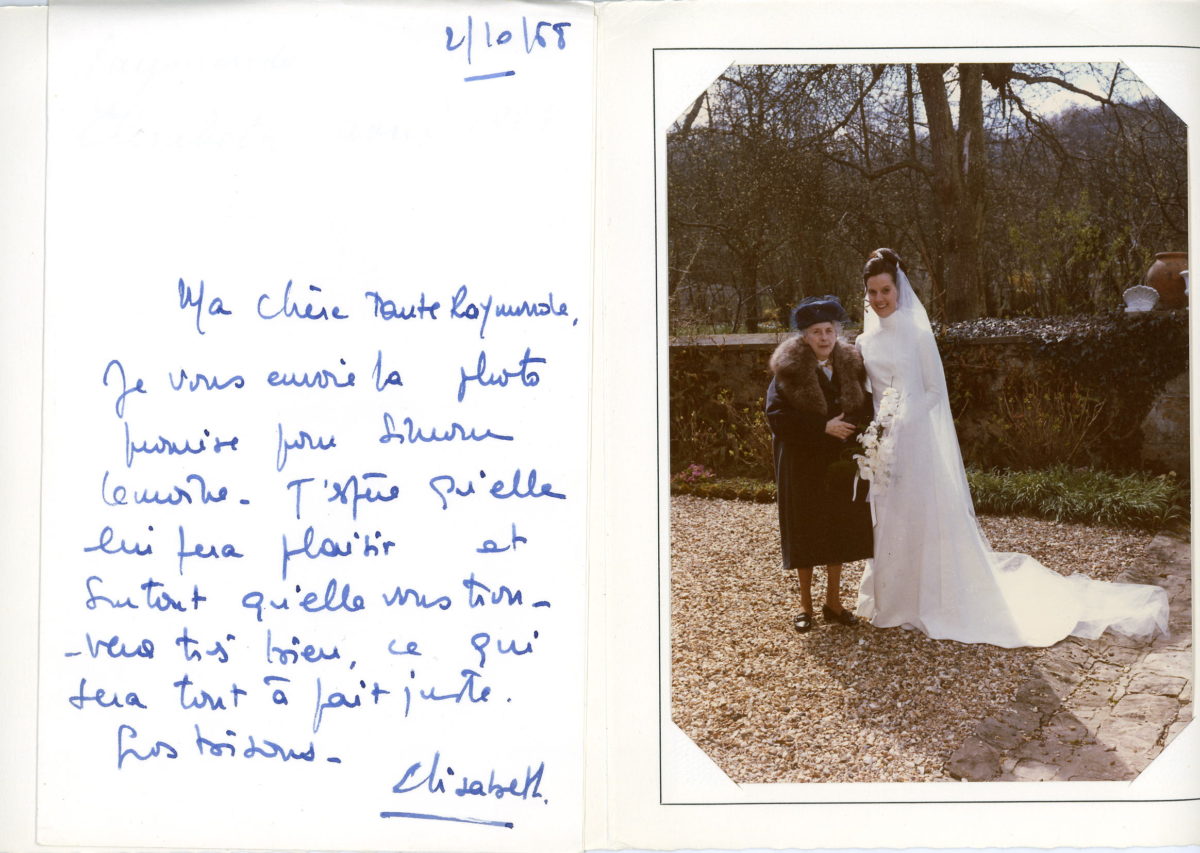 2/10/68
Ma chère Tante Raymonde,
Je vous envoie la photo
promise pour Simone
Lemoine - J'espère qu'elle
lui fera plaisir et
Surtout qu'elle vous trou-
-vera très bien, ce qui
sera tout à fait juste.
Gros bisous -
Elisabeth.